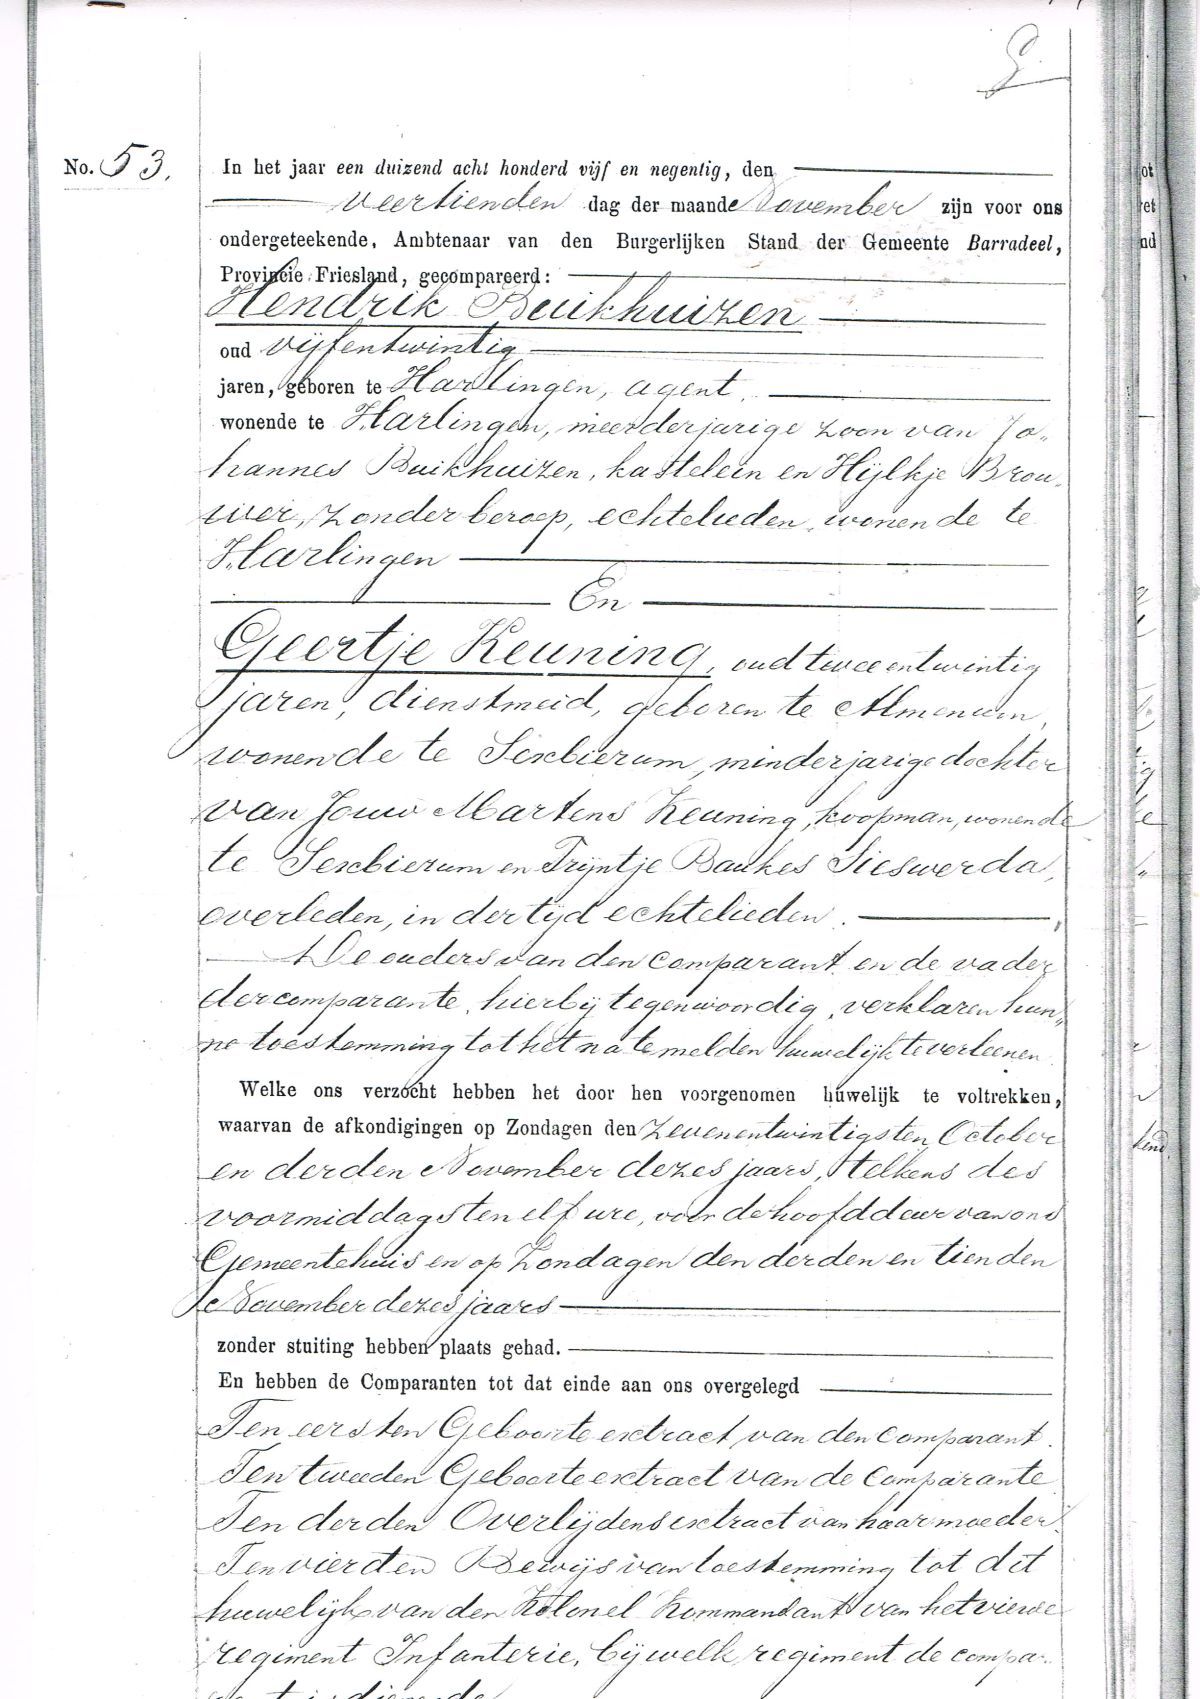 G.
No. 53.
In het jaar een duizend acht honderd vijf en negentig, den
veertienden dag der maande November zijn voor ons
ondergeteekende, Ambtenaar van den Burgerlijken Stand der Gemeente Barradeel,
Provincie Friesland, gecompareerd:
Hendrik Buikhuizen
oud vijfentwintig
jaren, geboren te Harlingen, agent,
wonende te Harlingen, meerderjarige zoon van Jo„
hannes Buikhuizen, kastelein en Hijlkje Brou„
wer, zonder beroep, echtelieden, wonende te
Harlingen
En
Geertje Keuning, oud tweeentwintig
jaren, dienstmeid, geboren te Almenum,
wonende te Sexbierum, minderjarige dochter
van Jouw Martens Keuning, koopman, wonende
te Sexbierum en Trijntje Baukes Sieswerda,
overleden, in der tijd echtelieden.
De ouders van den comparant en de vader
der comparante, hierbij tegenwoordig, verklaren hun„
ne toestemming tot het na te melden huwelijk te verleenen.
Welke ons verzocht hebben het door hen voorgenomen huwelijk te voltrekken,
waarvan de afkondigingen op Zondagen den zevenentwintigsten October
en derden November dezes jaars, telkens des
voormiddags ten elf ure, voor de hoofddeur van ons
Gemeentehuis en op Zondagen den derden en tienden
November dezes jaars
zonder stuiting hebben plaats gehad.
En hebben de Comparanten tot dat einde aan ons overgelegd
Ten eersten Geboorteextract van den comparant.
Ten tweeden Geboorteextract van de comparante
Ten derden Overlijdensextract van haar moeder.
Ten vierden Bewijs van toestemming tot dit
huwelijk van den Kolonel Kommandant van het vierde
regiment Infanterie, bij welk regiment de compa„